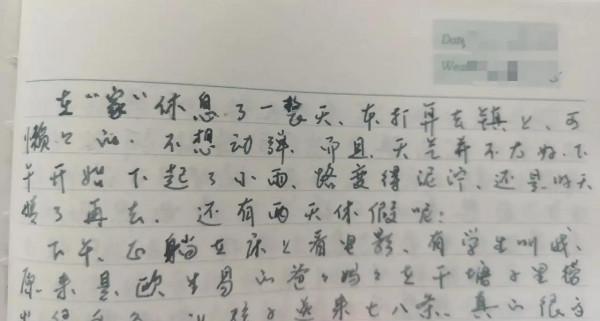 Date
Wea
在“家”休息了一整天、本打算去镇上、可
懒已的、不想动弹、而且、天气并不太好、下
午开始下起了小雨、路变得泥泞、还是明天
晴了再去、还有两天休假呢;
下午、正躺在床上看电影、有学生叫我、
原来是、欧生昌的爸々妈々在干塘子里捞
来七八条、真的很